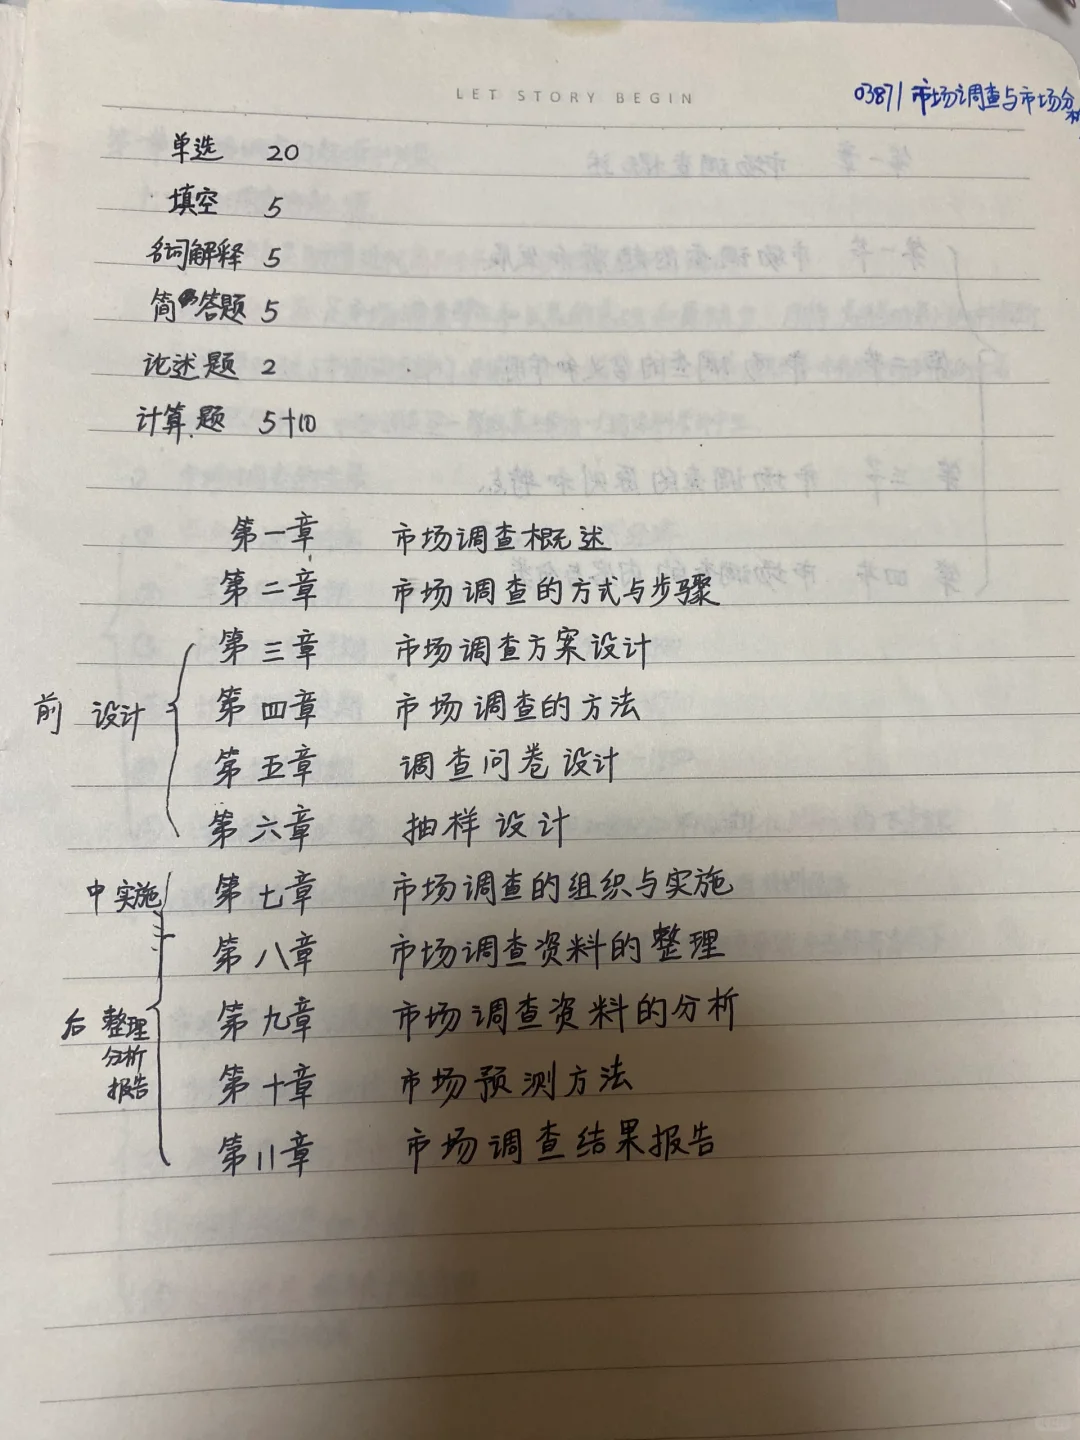 LET STORY BEGIN
03871市场调查与市场分析
单选 20
填空 5
名词解释 5
简答题 5
论述题 2
计算题 5+10
第一章 市场调查概述
第二章 市场调查的方式与步骤
第三章 市场调查方案设计
前 设计 第四章 市场调查的方法
第五章 调查问卷设计
第六章 抽样设计
中实施 第七章 市场调查的组织与实施
第八章 市场调查资料的整理
后 整理 第九章 市场调查资料的分析
分析
报告 第十章 市场预测方法
第11章 市场调查结果报告